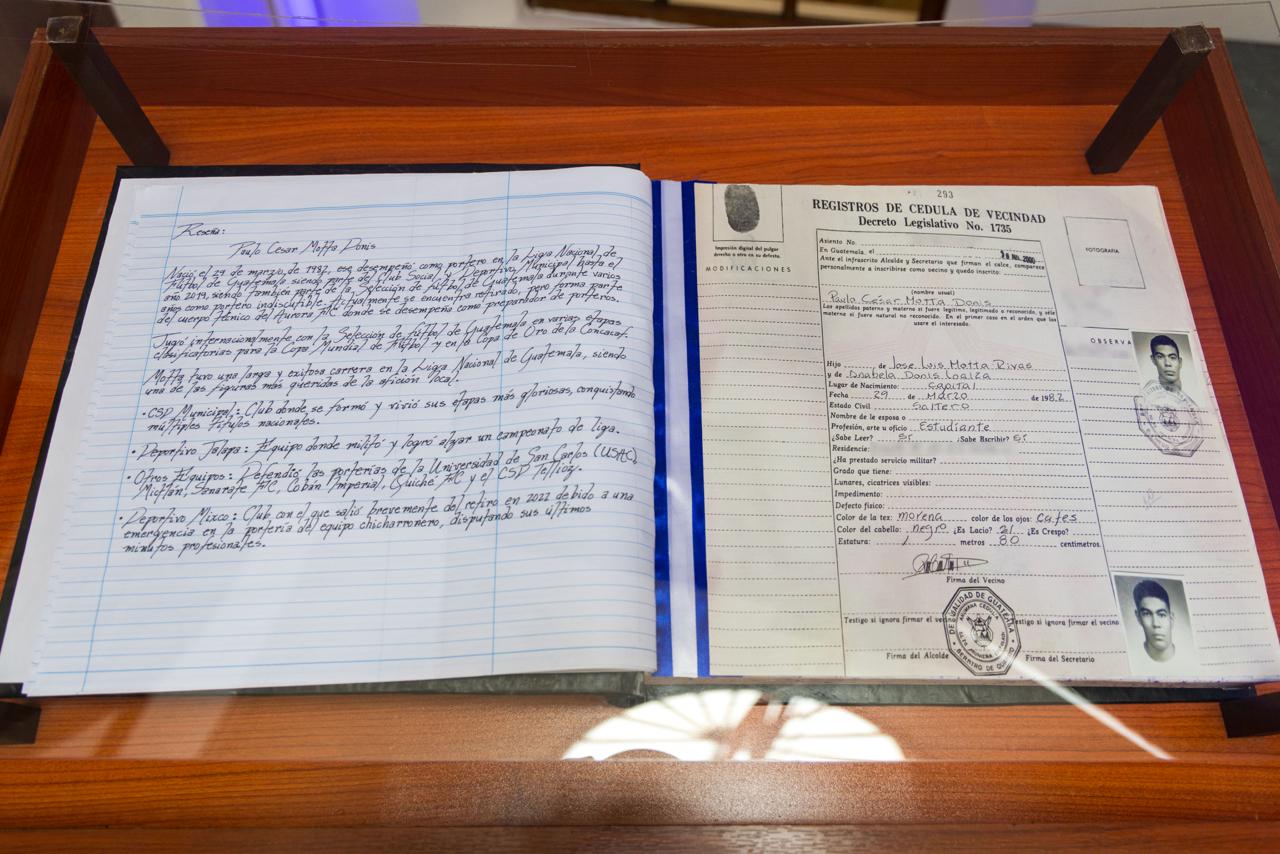 Reseña:
Paulo Cesar Motta Donis
Nació el 29 de marzo de 1982, ese desempeñó como portero en la Liga Nacional de
Fútbol de Guatemala siendo parte del Club Social y Deportivo Municipal hasta el
año 2019, siendo también parte de la Selección de Fútbol de Guatemala durante varios
años como portero indiscutible. Actualmente se encuentra retirado, pero forma parte
del cuerpo técnico del Aurora FC donde se desempeña como preparador de porteros.
Jugó internacionalmente con la Selección de fútbol de Guatemala en varias etapas
clasificatorias para la Copa Mundial de Fútbol y en la Copa de Oro de la Concacaf.
Motta tuvo una larga y exitosa carrera en la Liga Nacional de Guatemala, siendo
una de las figuras más queridas de la afición local.
· CSD Municipal: Club donde se formó y vivió sus etapas más gloriosas, conquistando
múltiples títulos nacionales.
· Deportivo Jalapa: Equipo donde militó y logró alzar un campeonato de liga.
· Otros Equipos: Defendió las porterías de la Universidad de San Carlos (USAC),
Mictlán, Sanarate FC, Cobán Imperial, Quiché FC y el CSD Tellioz.
· Deportivo Mixco: Club con el que salió brevemente del retiro en 2022 debido a una
emergencia en la portería del equipo chicharronero, disputando sus últimos
minutos profesionales.
293
REGISTROS DE CEDULA DE VECINDAD
Decreto Legislativo No. 1735
Impresión digital del pulgar
derecho u otro en su defecto.
MODIFICACIONES
Asiento No.
En Guatemala, el
Ante el infrascrito Alcalde y Secretario que firman al calce, comparece
personalmente a inscribirse como vecino y quedó inscrito:
(nombre usual)
Paulo César Motta Donis
Los apellidos paterno y materno si fuere legítimo, legitimado o reconocido, y sólo
materno si fuere natural no reconocido. En el primer caso en el orden que los
usare el interesado.
Hijo de Jose Luis Motta Rivas
y de Donis Loaiza
Lugar de Nacimiento: Capital
Fecha 29 de Marzo de 1982
Estado Civil Soltero
Nombre de la esposa o
Profesión, arte u oficio Estudiante
¿Sabe Leer? Sí ¿Sabe Escribir? Sí
Residencia:
¿Ha prestado servicio militar?
Grado que tiene:
Lunares, cicatrices visibles:
Impedimento:
Defecto físico:
Color de la tez: morena color de los ojos: Cafes
Color del cabello: negro ¿Es Lacio? Sí ¿Es Crespo?
Estatura: 1 metros 80 centímetros.
Firma del Vecino
Testigo si ignora firmar el vecino Testigo si ignora firmar el vecino
Firma del Alcalde Firma del Secretario
FOTOGRAFIA
OBSERVA